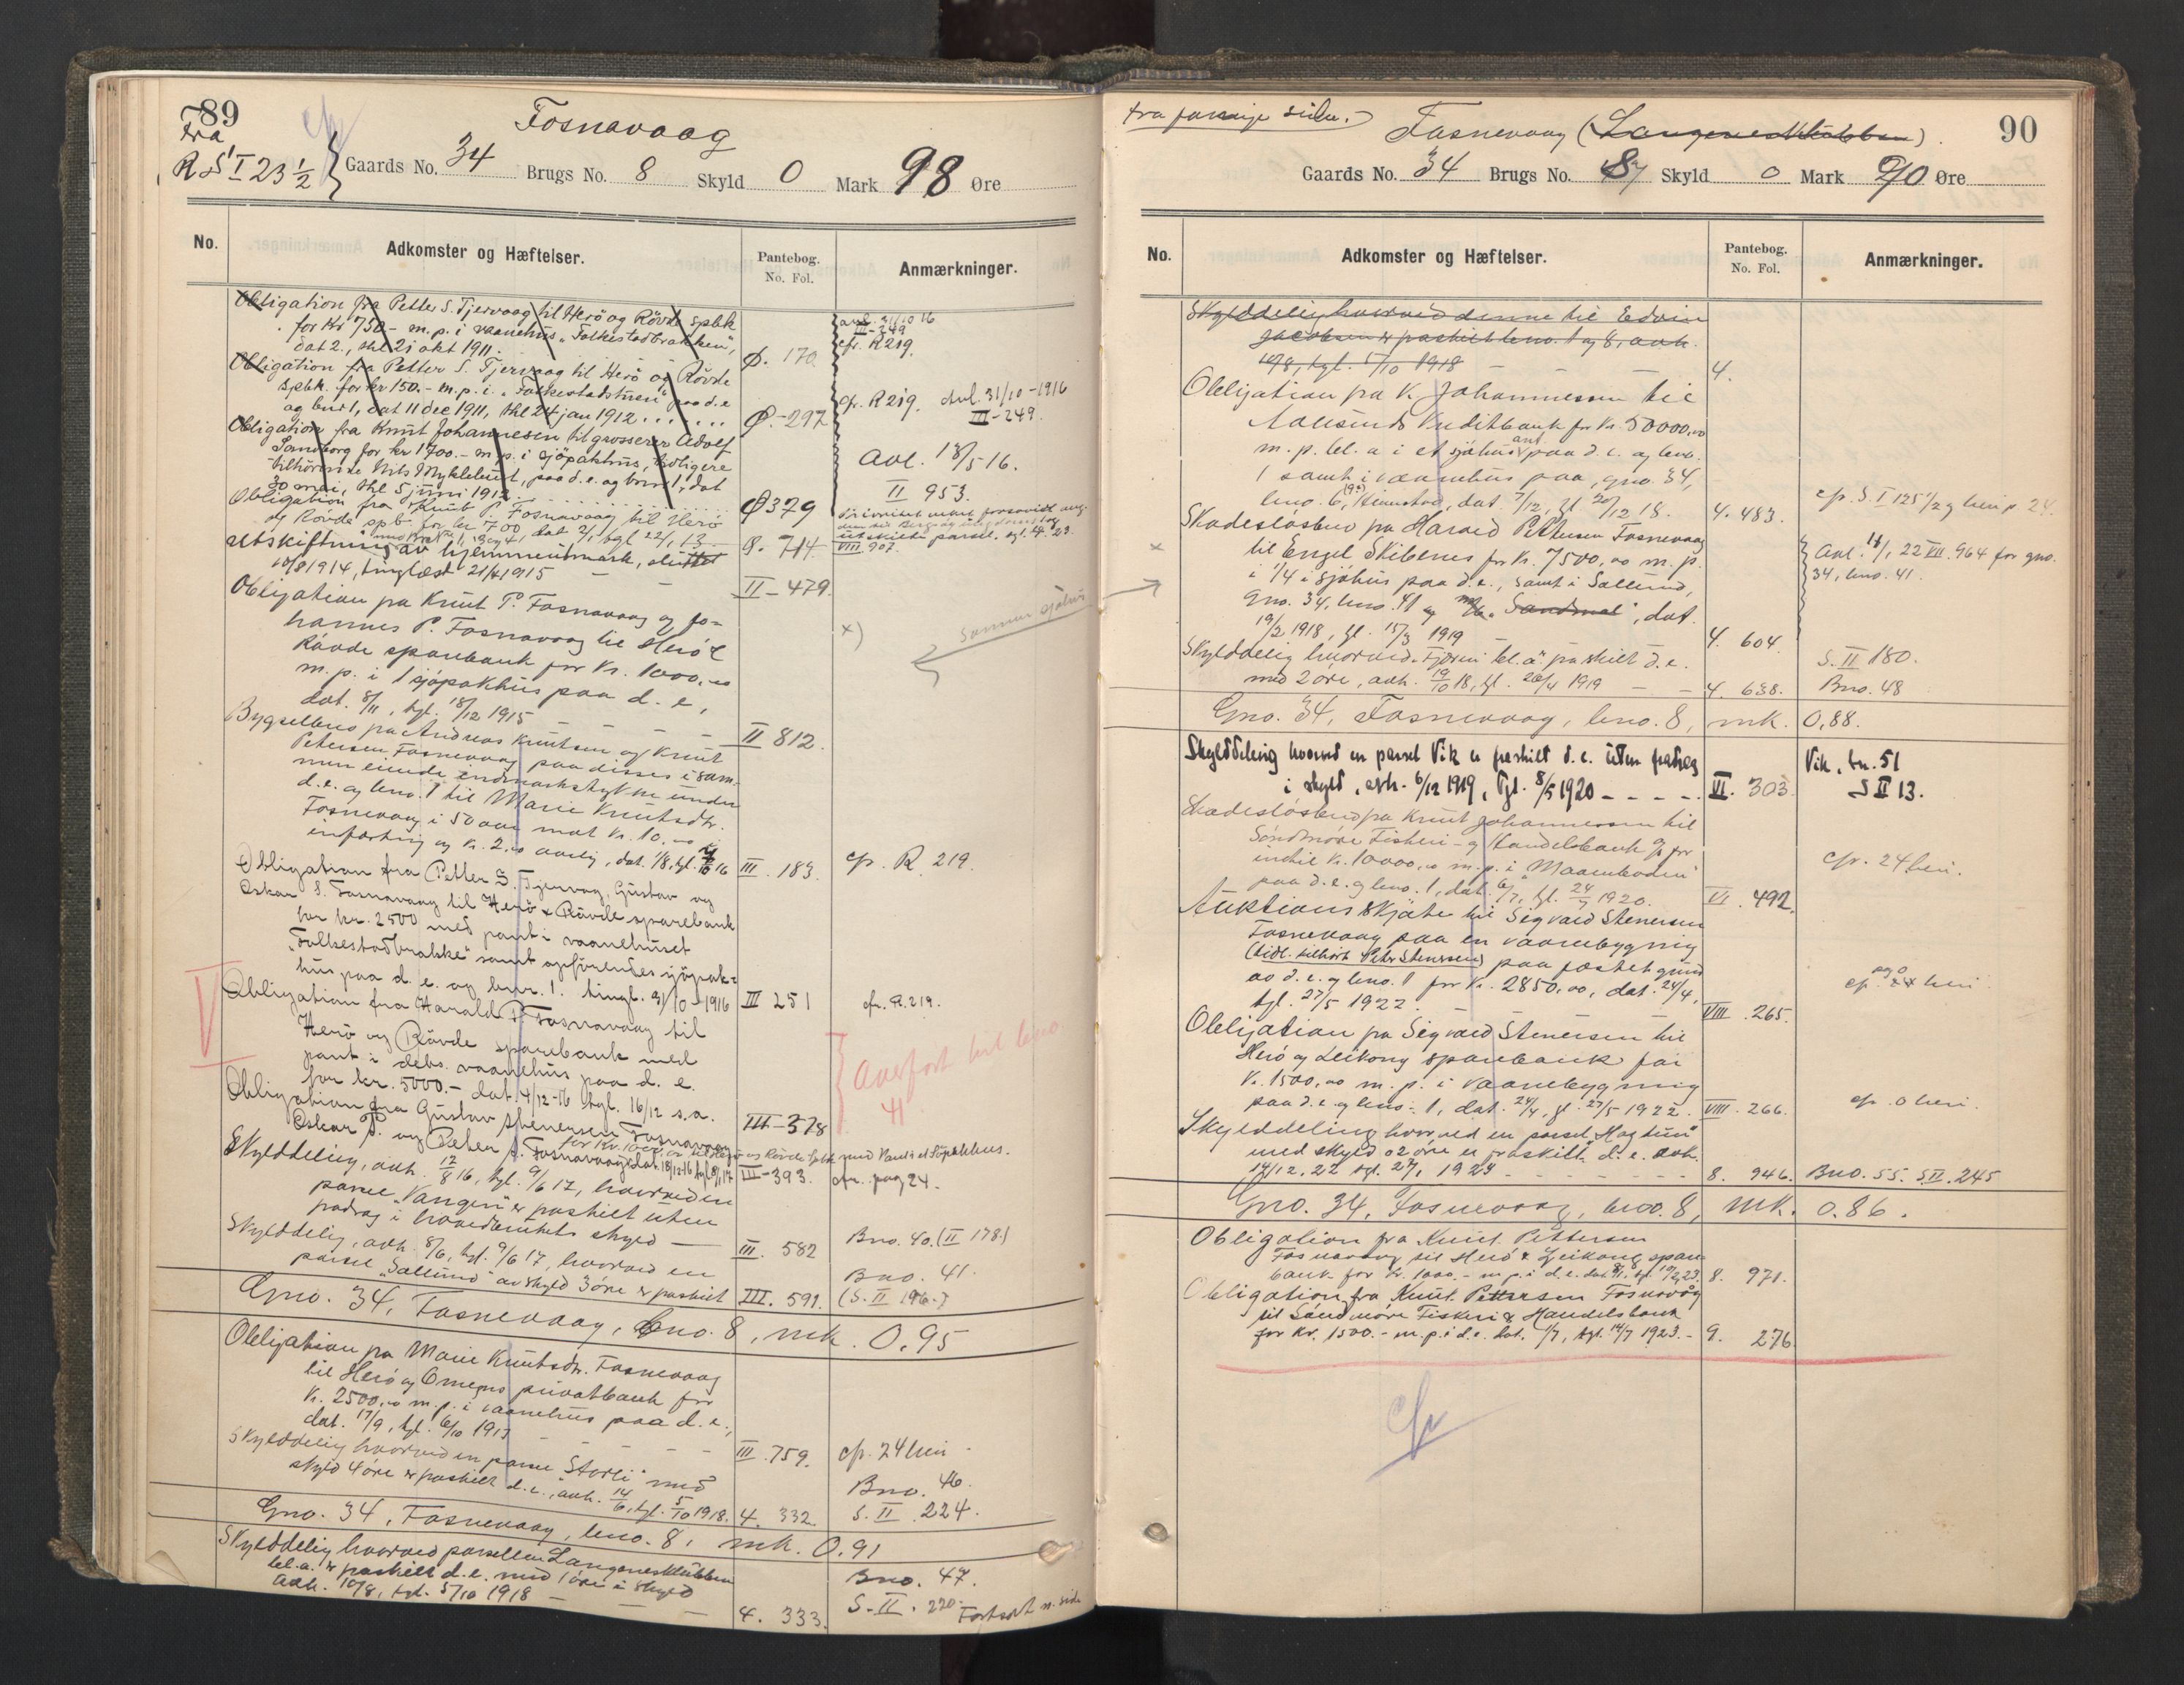 89
Fra
R S' I 23 1/2
Fosnavaag
Gaards No. 34 Brugs No. 8 Skyld 0 Mark 98 Øre
No. Adkomster og Hæftelser. Pantebog. No. Fol. Anmærkninger.
Obligation fra Petter S. Tjervaag til Herö og Rövde spbk
for kr 750.- m. p. i vaanehus "Folkestadbrakken",
dat 2., thl 21 okt 1911. Ø. 170 avl. 31/10 16 III-249 cfr. R219.
Obligation fra Petter S. Tjervaag til Herö og Rövde
spbk. for kr 150.- m. p. i. "Folkestadstuen" paa d. e
og bnr 1, dat 11 dec 1911, thl 24 jan 1912 Ø.-297 cfr. R219. avl. 31/10-1916 III-249.
Obligation fra Knut Johannesen til grosserer Adolf
Sandborg for kr 1700.- m. p. i sjöpakhus, tidligere
tilhörende Nils Myklebust, paa d. e. og bnr 1, dat
30 mai, thl 5 juni 1912. Ø379 Avl. 18/5 16. II 953.
Obligation fra Knut P. Fosnavaag til Herö
og Rövde spb. for kr 700 dat 2/1, tgl 22/1 13. Ø. 714
utskilte parsel, tgl. 4. 23. VIII. 907.
Utskiftning av hjemmeutmark, sluttet
10/8 1914, tinglæst 21/4 1915 II-479.
Obligation fra Knut P. Fosnavaag og Jo-
hannes P. Fosnavaag til Herö &
Rövde sparebank for Kr. 1000,00
m. p. i 1 sjöpakhus paa d. e,
dat. 8/11, tgl. 18/12 1915 II 812. x) samme sjöhus
Bygselbrev fra Andreas Knutsen og Knut
Petersen Fosnevaag paa disses i sam-
men eiende indmarkstykke under
d. e. og bno. 1 til Marie Knutsdtr.
Fosnevaag i 50 aar mot Kr. 10.-
indfæstnig og Kr. 2.00 aarlig, dat. 1/8, tgl. 16 III. 183. cfr. R. 219.
Obligation fra Petter S. Tjervaag, Gustav og
Oskar S. Fosnavaag til Herö & Rövde sparebank
for kr. 2500 med pant i vaanehuset
"Folkestadbrakke" samt opförendes sjöpak-
hus paa d. e. og bnr. 1. tingl. 31/10-1916 III 251 cfr. R. 219.
Obligation fra Harald P. Fosnavaag til
Herö og Rövde sparebank med
pant i debs. vaanehus paa d. e.
for kr. 5000.- dat. 4/12-16 tgl. 16/12 s.a. III-378 Overfört til bno 41
Obligation fra Gustav Stenersen Fosnavaag
Oskar P. og Peter S. Fosnavaag dat. 18/12-16 tgl 8/1 17 III-393. cfr. pag 24.
for Kr. 1000,00 til Herö og Rövde Spbk med Pant i et Sjöpakhus.
Skylddeling, avh. 12/8 16, tgl. 9/6 17, hvorved en
parsel "Vangen" er fraskilt uten
fradrag i hovedbrukets skyld III. 582 Bno. 40. (II 178.)
Skylddelig, avh. 8/6, tgl. 9/6 17, hvorved en
parsel "Sallund" av skyld 3 öre er fraskilt III. 591. Bno. 41. (S. II 196.)
Gno. 34, Fosnevaag, Bno. 8, mk. 0.95
Obligation fra Marie Knutsdtr. Fosnevaag
til Herö og Omegns privatbank for
Kr. 2500.00 m. p. i vaanehus paa d. e.,
dat. 17/9, tgl. 6/10 1917 III. 759. cfr. 24 heri
Skylddelig hvorved en parsel "Storli" med
skyld 4 öre er fraskilt d. e., avh. 14/6, tgl. 5/10 1918. 4. 332. Bno. 46. S. II. 224.
Gno. 34, Fosnevaag, bno. 8, mk. 0,91
Skylddelig hvorved parsellen Langenesklubben
bel. a. er fraskilt d. e. med 1 öre i skyld
avh. 10/8, tgl. 5/10 1918 4. 333. Bno. 47. S. II. 220. Fortsat n. side
fra forrige side.
90
Fosnevaag (Langenesklubben).
Gaards No. 34 Brugs No. 8 Skyld 0 Mark 90 Øre
No. Adkomster og Hæftelser. Pantebog. No. Fol. Anmærkninger.
Skylddelig hvorved denne til Edvin
Jacobsen er fraskilt bno. 1 og 8, avh.
10/8, tgl. 5/10 1918 4.
Obligation fra K. Johannessen til
Aalesunds Kreditbank for Kr. 50000,00
m. p. bl. a i et sjöhus paa d. e. og bno.
1 samt i vaanehus paa, gno. 34,
bno. 6, dat. 7/12, tgl 20/12 18. 4. 483. cfr. S. I 125 1/2 og heri p 24.
Skadeslösbrev fra Harald Pettersen Fosnevaag
til Engel Skibenes for Kr. 7500,00 m. p.
i 1/4 i sjöhus paa d. e., samt i Sallund,
Gno. 34, bno. 41 og "Sandmal", dat.
19/2 1918, tgl. 15/3 1919 4. 604. Avl. 18/1 22 VII. 964 for gno. 34, bno. 41.
Skylddelig hvorved "Fjæren" bel. a. fraskilt d. e.
med 2 öre, avh. 19/10 18, tgl. 26/4 1919 4. 638. S. II 180. Bno. 48
Gno. 34, Fosnevaag, bno. 8, mk. 0,88.
Skylddeling hvorved en parsel Vik er fraskilt d. e. uten fradrag
i skyld, avh. 6/12 1919, Tgl. 8/5 1920 VI. 303. Vik, bn. 51 S II 13.
Skadeslösbrev fra Knut Johannessen til
Söndmöre Fiskeri- og Handelsbank for
indtil Kr. 10000,00 m. p. i "Maaneboden"
paa d. e. og bno. 1, dat. 6/7, tgl. 24/7 1920. VI. 492. cfr. 24 heri.
Auktionsskjöte til Sigvald Stenersen
Fosnevaag paa en vaanebygnig
(tidl. tilhört Peter Stenersen) paa fæstet grund
av d. e. og bno. 1 for Kr. 2850.00, dat. 24/4,
tgl. 27/5 1922. VIII. 265. cfr. heri.
Obligation fra Sigvald Stenersen til
Herö og Leikong sparebank for
Kr. 1500,00 m. p. i vaanebygnig
paa d. e. og bno. 1, dat. 24/4, tgl. 27/5 1922. VIII. 266. cfr. o heri.
Skylddeling hvorved en parsel "Hagtun"
med skyld 02 öre er fraskilt d. e. avh.
14/12. 22 tgl. 27/1 1923 8. 946. Bno. 55. S II. 245
Gno. 34, Fosnevaag, bno. 8, Mk. 0.86.
Obligation fra Knut Pettersen
Fosnavaag til Herö & Leikong spare
bank for Kr. 1000.- m. p. i d. e. tgl. 10/2 23. 8. 971.
Obligation fra Knut Pettersen Fosnavåg
til Söndmöre Fiskeri & Handelsbank
for Kr. 1500.- m. p. i d. e. dat. 1/7, tgl. 14/7 1923. 9. 276.
cfr